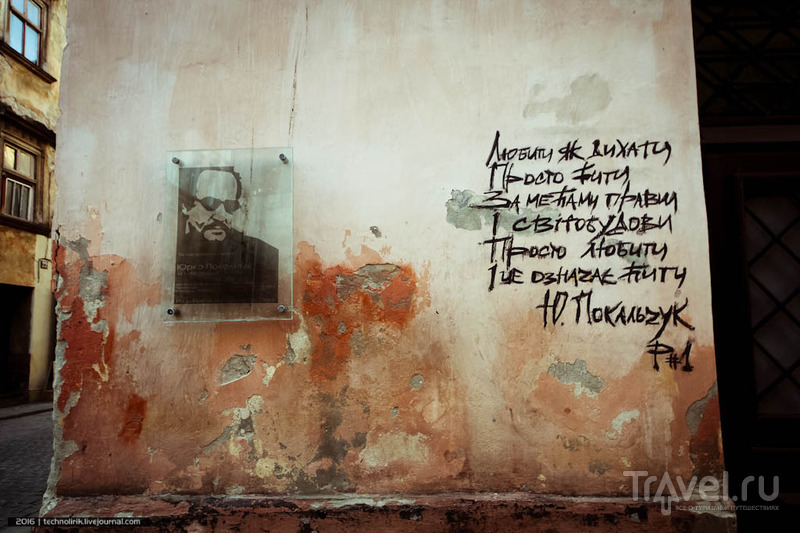 Юрко Покальчук
Любити як дихати
Просто жити
За межами правди
І світобудови
Просто любити
І це означає жити
Ю. Покальчук
Р#1
Travel.ru
ВСЁ О ТУРИЗМЕ И ПУТЕШЕСТВИЯХ
2016 | technolirik.livejournal.com